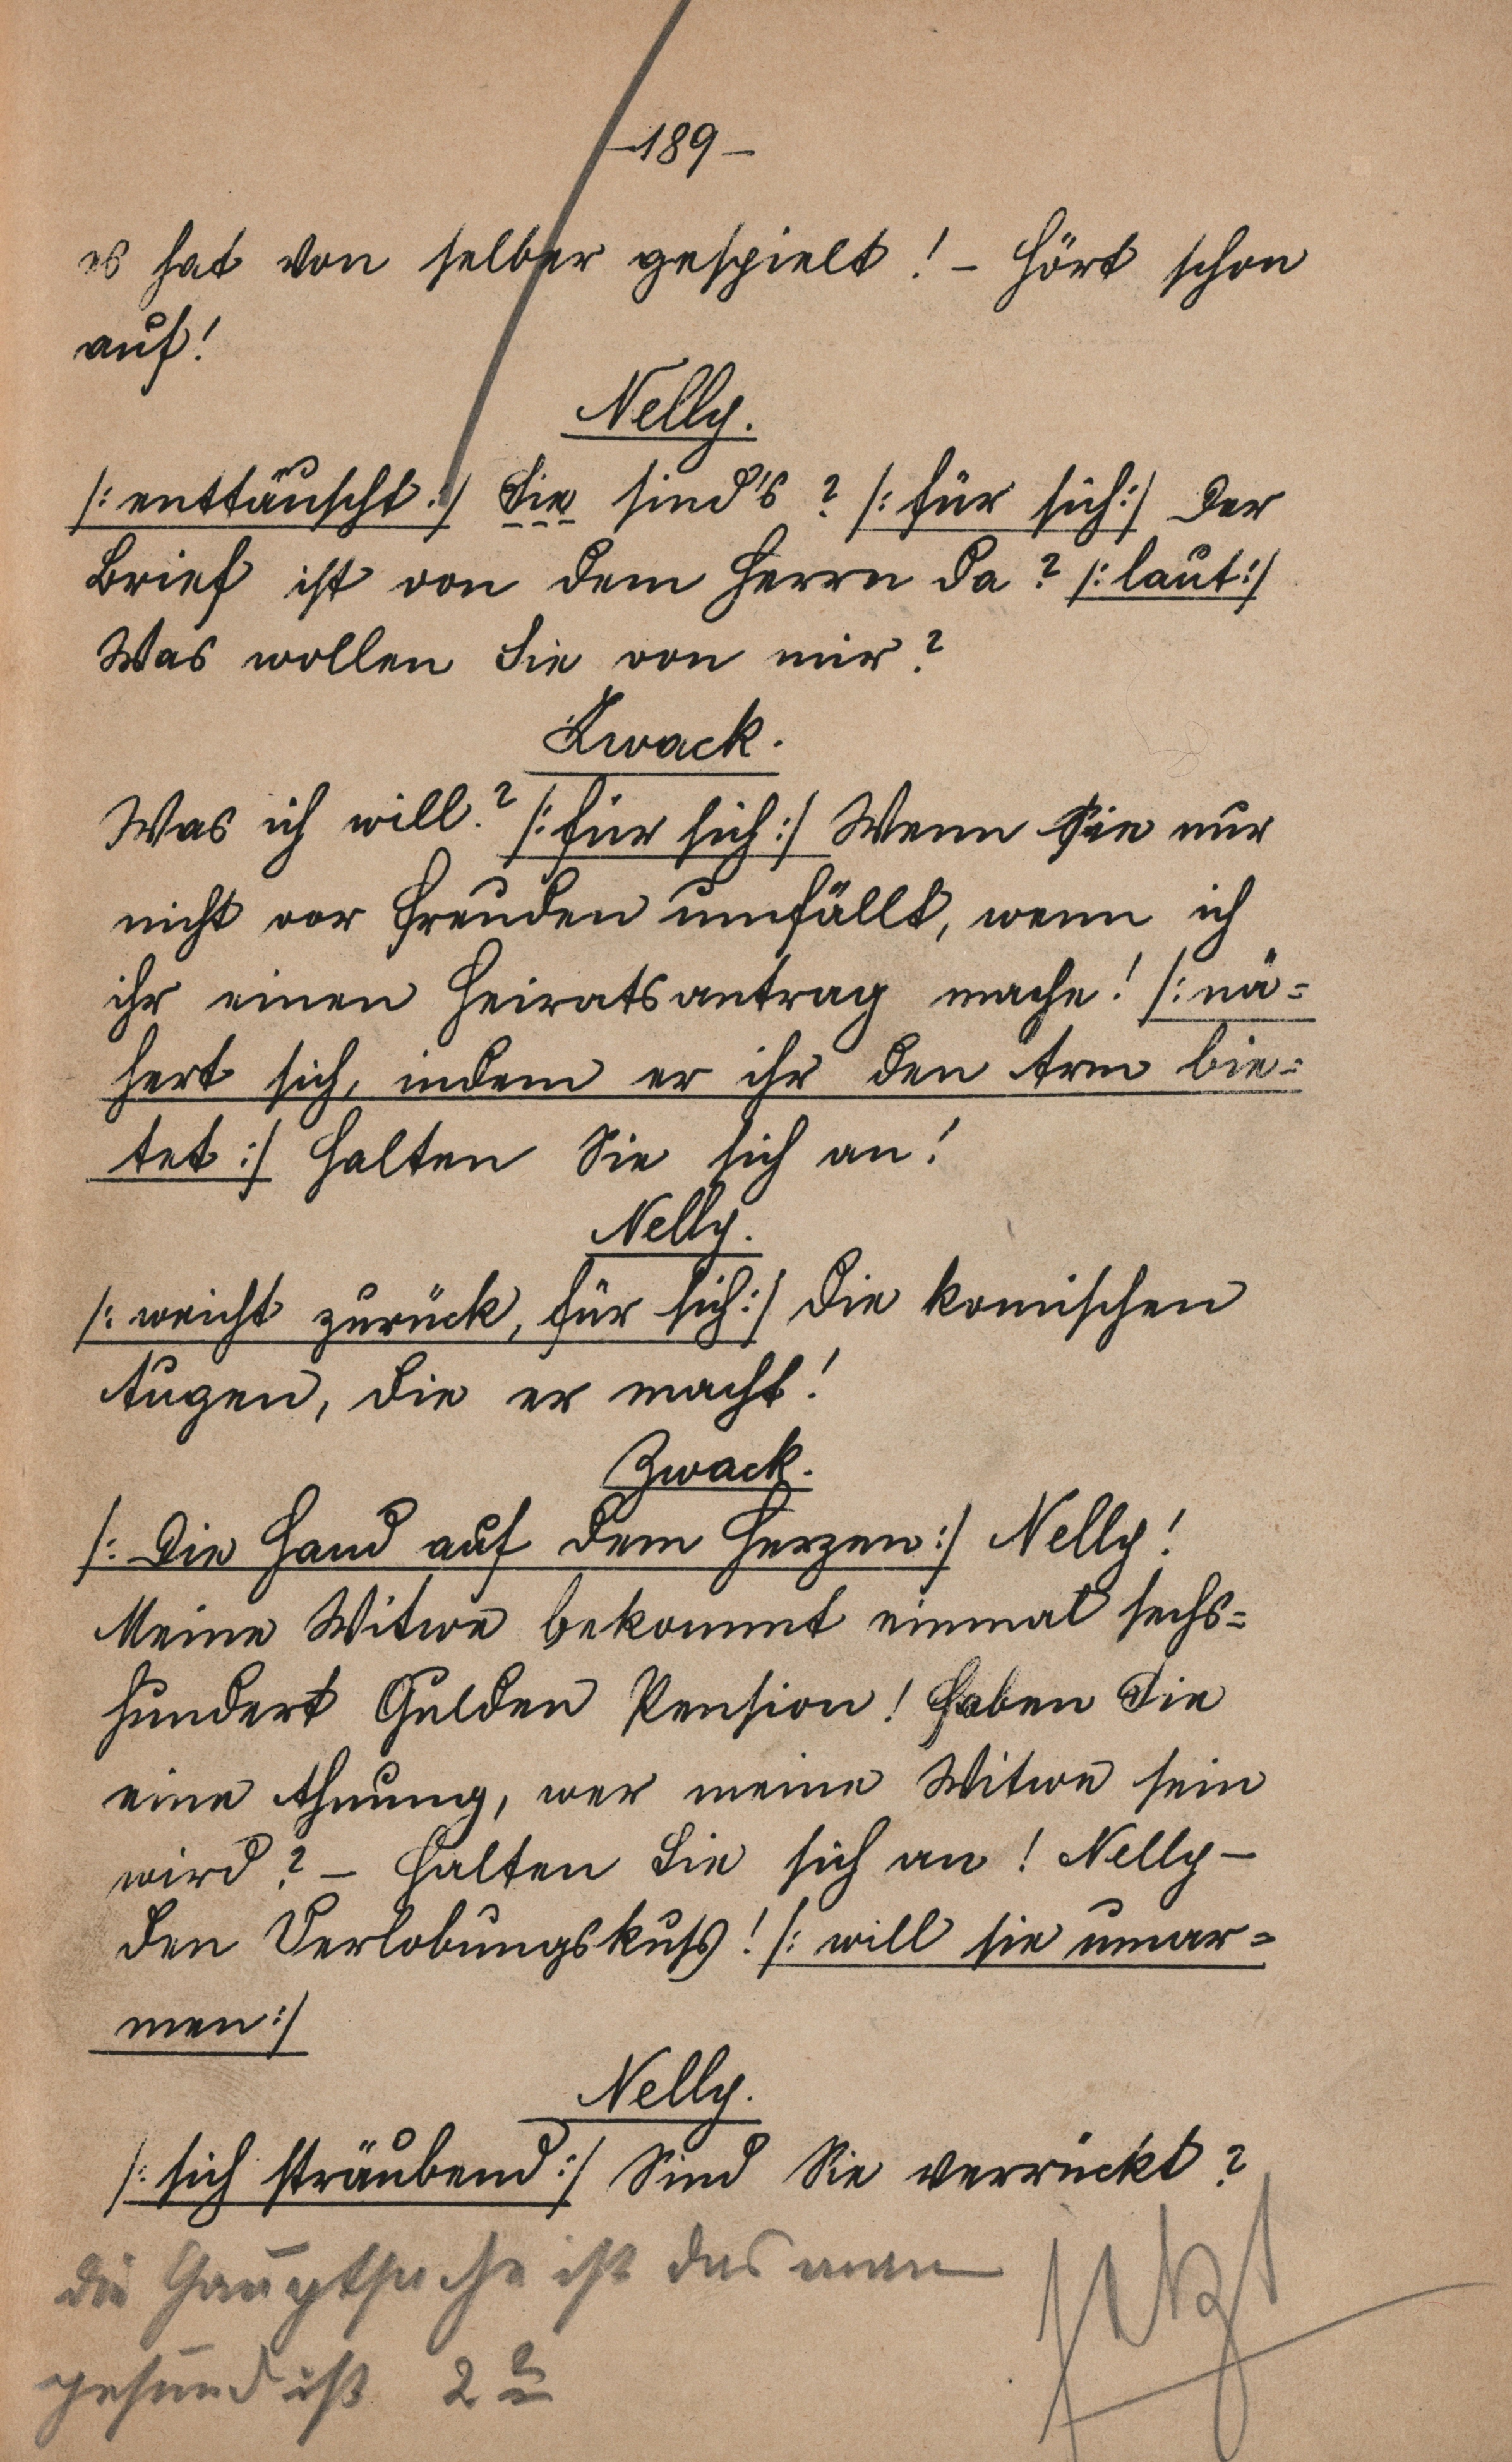 -189-
es hat von selber gespielt! - Hört schon
auf!
Nelly.
/: enttäuscht :/ Sie sind's? /: für sich :/ Der
Brief ist von dem Herrn da? /: laut :/
Was wollen Sie von mir?
Zwack.
Was ich will? /: für sich :/ Wenn sie nur
nicht vor Freuden umfällt, wenn ich
ihr einen Heiratsantrag mache! /: nä=
hert sich, indem er ihr den Arm bie=
tet :/ Halten Sie sich an!
Nelly.
/: weicht zurück, für sich :/ Die komischen
Augen, die er macht!
Zwack.
/: Die Hand auf dem Herzen :/ Nelly!
Meine Witwe bekommt einmal sechs=
hundert Gulden Pension! Haben Sie
eine Ahnung, wer meine Witwe sein
wird? - Halten Sie sich an! Nelly -
den Verlobungskuss! /: will sie umar=
men :/
Nelly.
/: sich sträubend :/ Sind Sie verrückt?
die Hauptsache ist das man
gesund ist 2